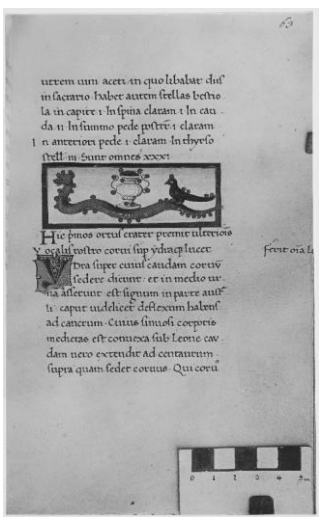 63
utrem uini aceti in quo libabat dñs
in sacrario · habet autem stellas bestio
la in capite · I · In spina claram · I · In cau
da · II · In summo pede postre · I · claram
In anteriori pede · I · claram · In thyrso
stell · III · Sunt omnes XXXI
Hic pinos ortus crater premit ulteriois
Vocalis rostro corui sup ydra plucet
Vdra super cuius caudam coruū
sedere dicunt · et in medio ur
na asserunt · est signum in parte aust
li · caput uidelicet deflexum habens
ad cancrum · Cuius sinuosi corporis
medietas est connexa sub Leone cau
dam uero extendit ad centaurum ·
supra quam sedet coruus · Qui coru
0 1 2 3 4